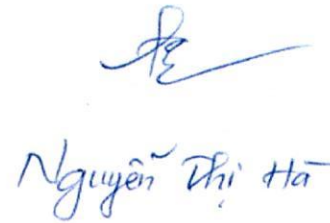 Nguyễn Thị Hà